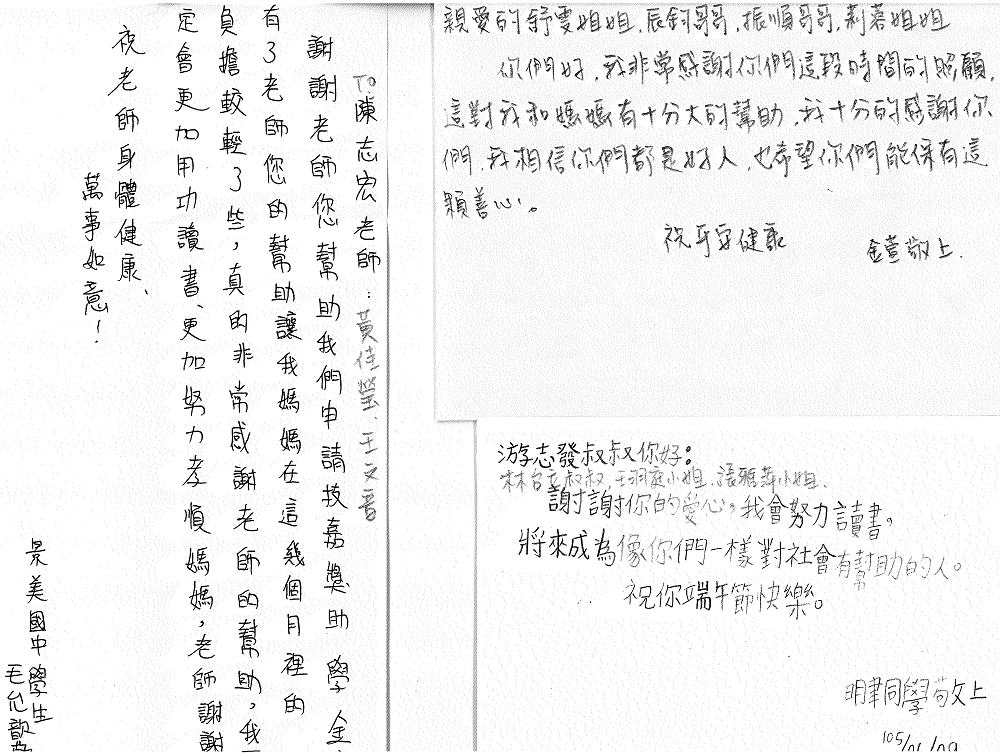 To陳志宏老師：黃佳瑩、王文音
謝謝老師您幫助我們申請技嘉獎助學金
有了老師您的幫助讓我媽媽在這幾個月裡的
負擔較輕了些，真的非常感謝老師的幫助，我
定會更加用功讀書、更加努力孝順媽媽，老師謝謝
祝老師身體健康、
萬事如意！
景美國中學生
毛允歆
親愛的舒雯姐姐，辰鈞哥哥，振順哥哥，莉茗姐姐
你們好，我非常感謝你們這段時間的照顧，
這對我和媽媽有十分大的幫助，我十分的感謝你
們，我相信你們都是好人，也希望你們能保有這
顆善心。
祝平安健康
金萱敬上
游志發叔叔你好：
林台立叔叔，王羽庭小姐，張雅萍小姐，
謝謝你的愛心，我會努力讀書，
將來成為像你們一樣對社會有幫助的人。
祝你端午節快樂。
明聿同學敬上
105/06/09